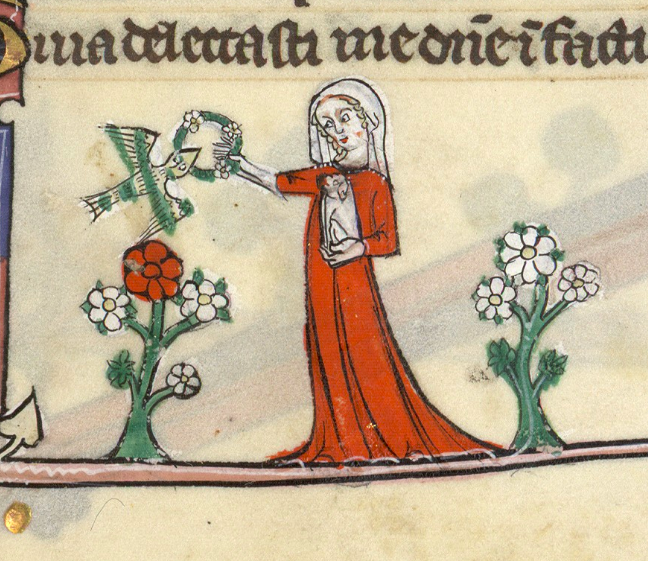 uia delectasti me dñe ĩ factu